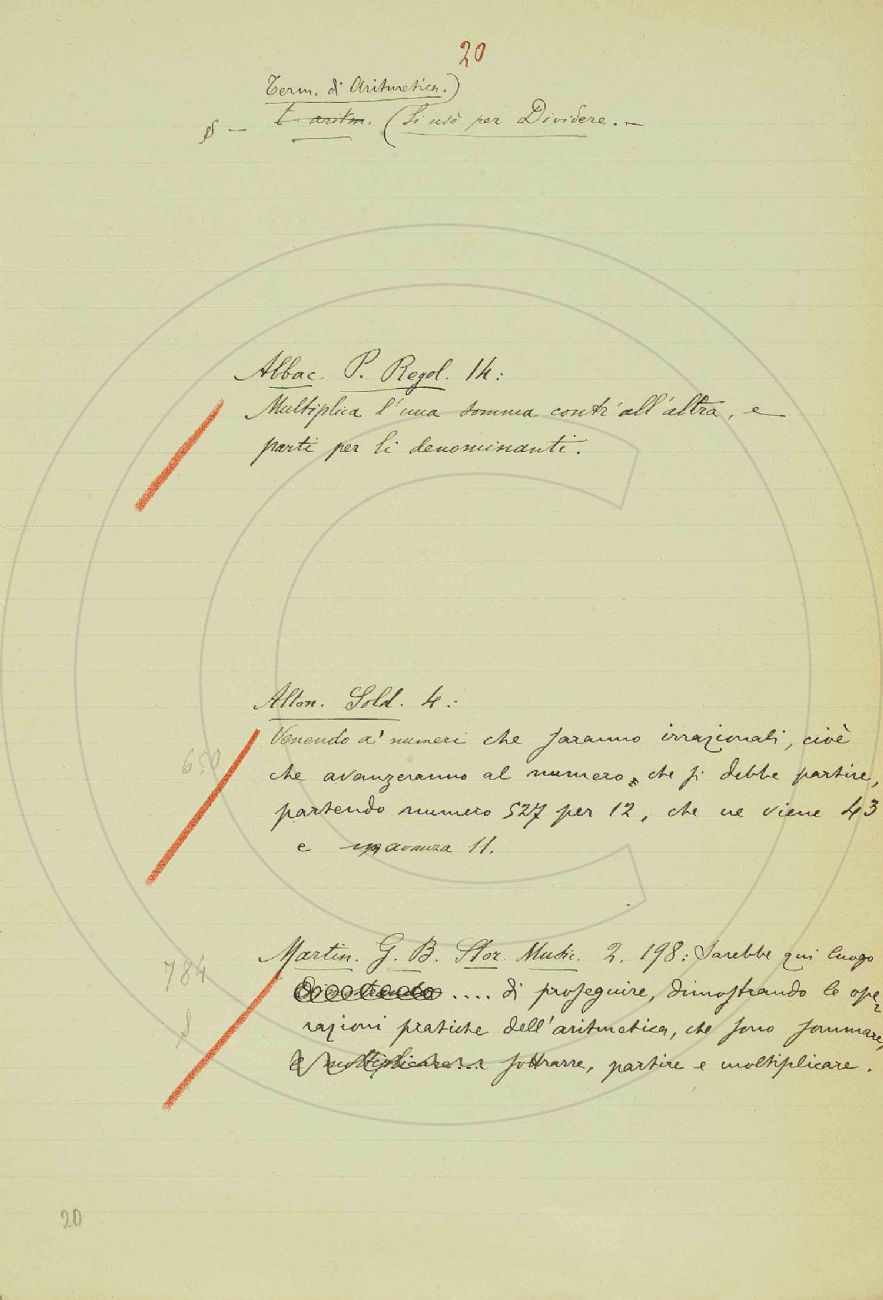 20
Term. d'Aritmetica.)
§ — t. aritm. (Si usò per Dividere. —
Abbac. P. Regol. 14:
Multiplica l'una somma contr'all'altra, e
parti per li denominanti.
Alton. Sold. 4:
Venendo a' numeri che saranno irrazionali, cioè
650
che avanzeranno al numero, che si debbe partire,
partendo numero 527 per 12, che ne viene 43
e avanza 11.
Martin. G. B. Stor. Music. 2. 198: Sarebbe qui luogo
784
.... di proseguire, dimostrando le ope=
razioni pratiche dell'aritmetica, che sono sommare,
sottrarre, partire e moltiplicare.
20